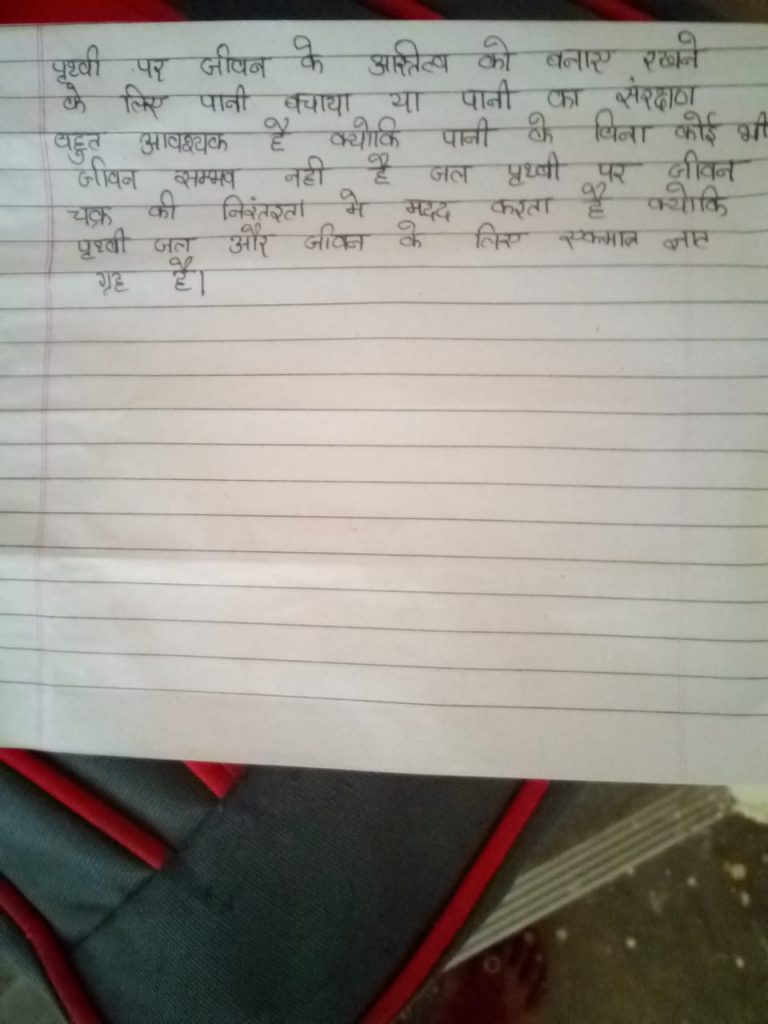 पृथ्वी पर जीवन के अस्तित्व को बनाए रखने
के लिए पानी बचाया या पानी का संरक्षण
बहुत आवश्यक है क्योकि पानी के बिना कोई भी
जीवन सम्भव नही है जल पृथ्वी पर जीवन
चक्र की निरंतरता मे मदद करता है क्योकि
पृथ्वी जल और जीवन के लिए एकमात्र ज्ञात
ग्रह है।